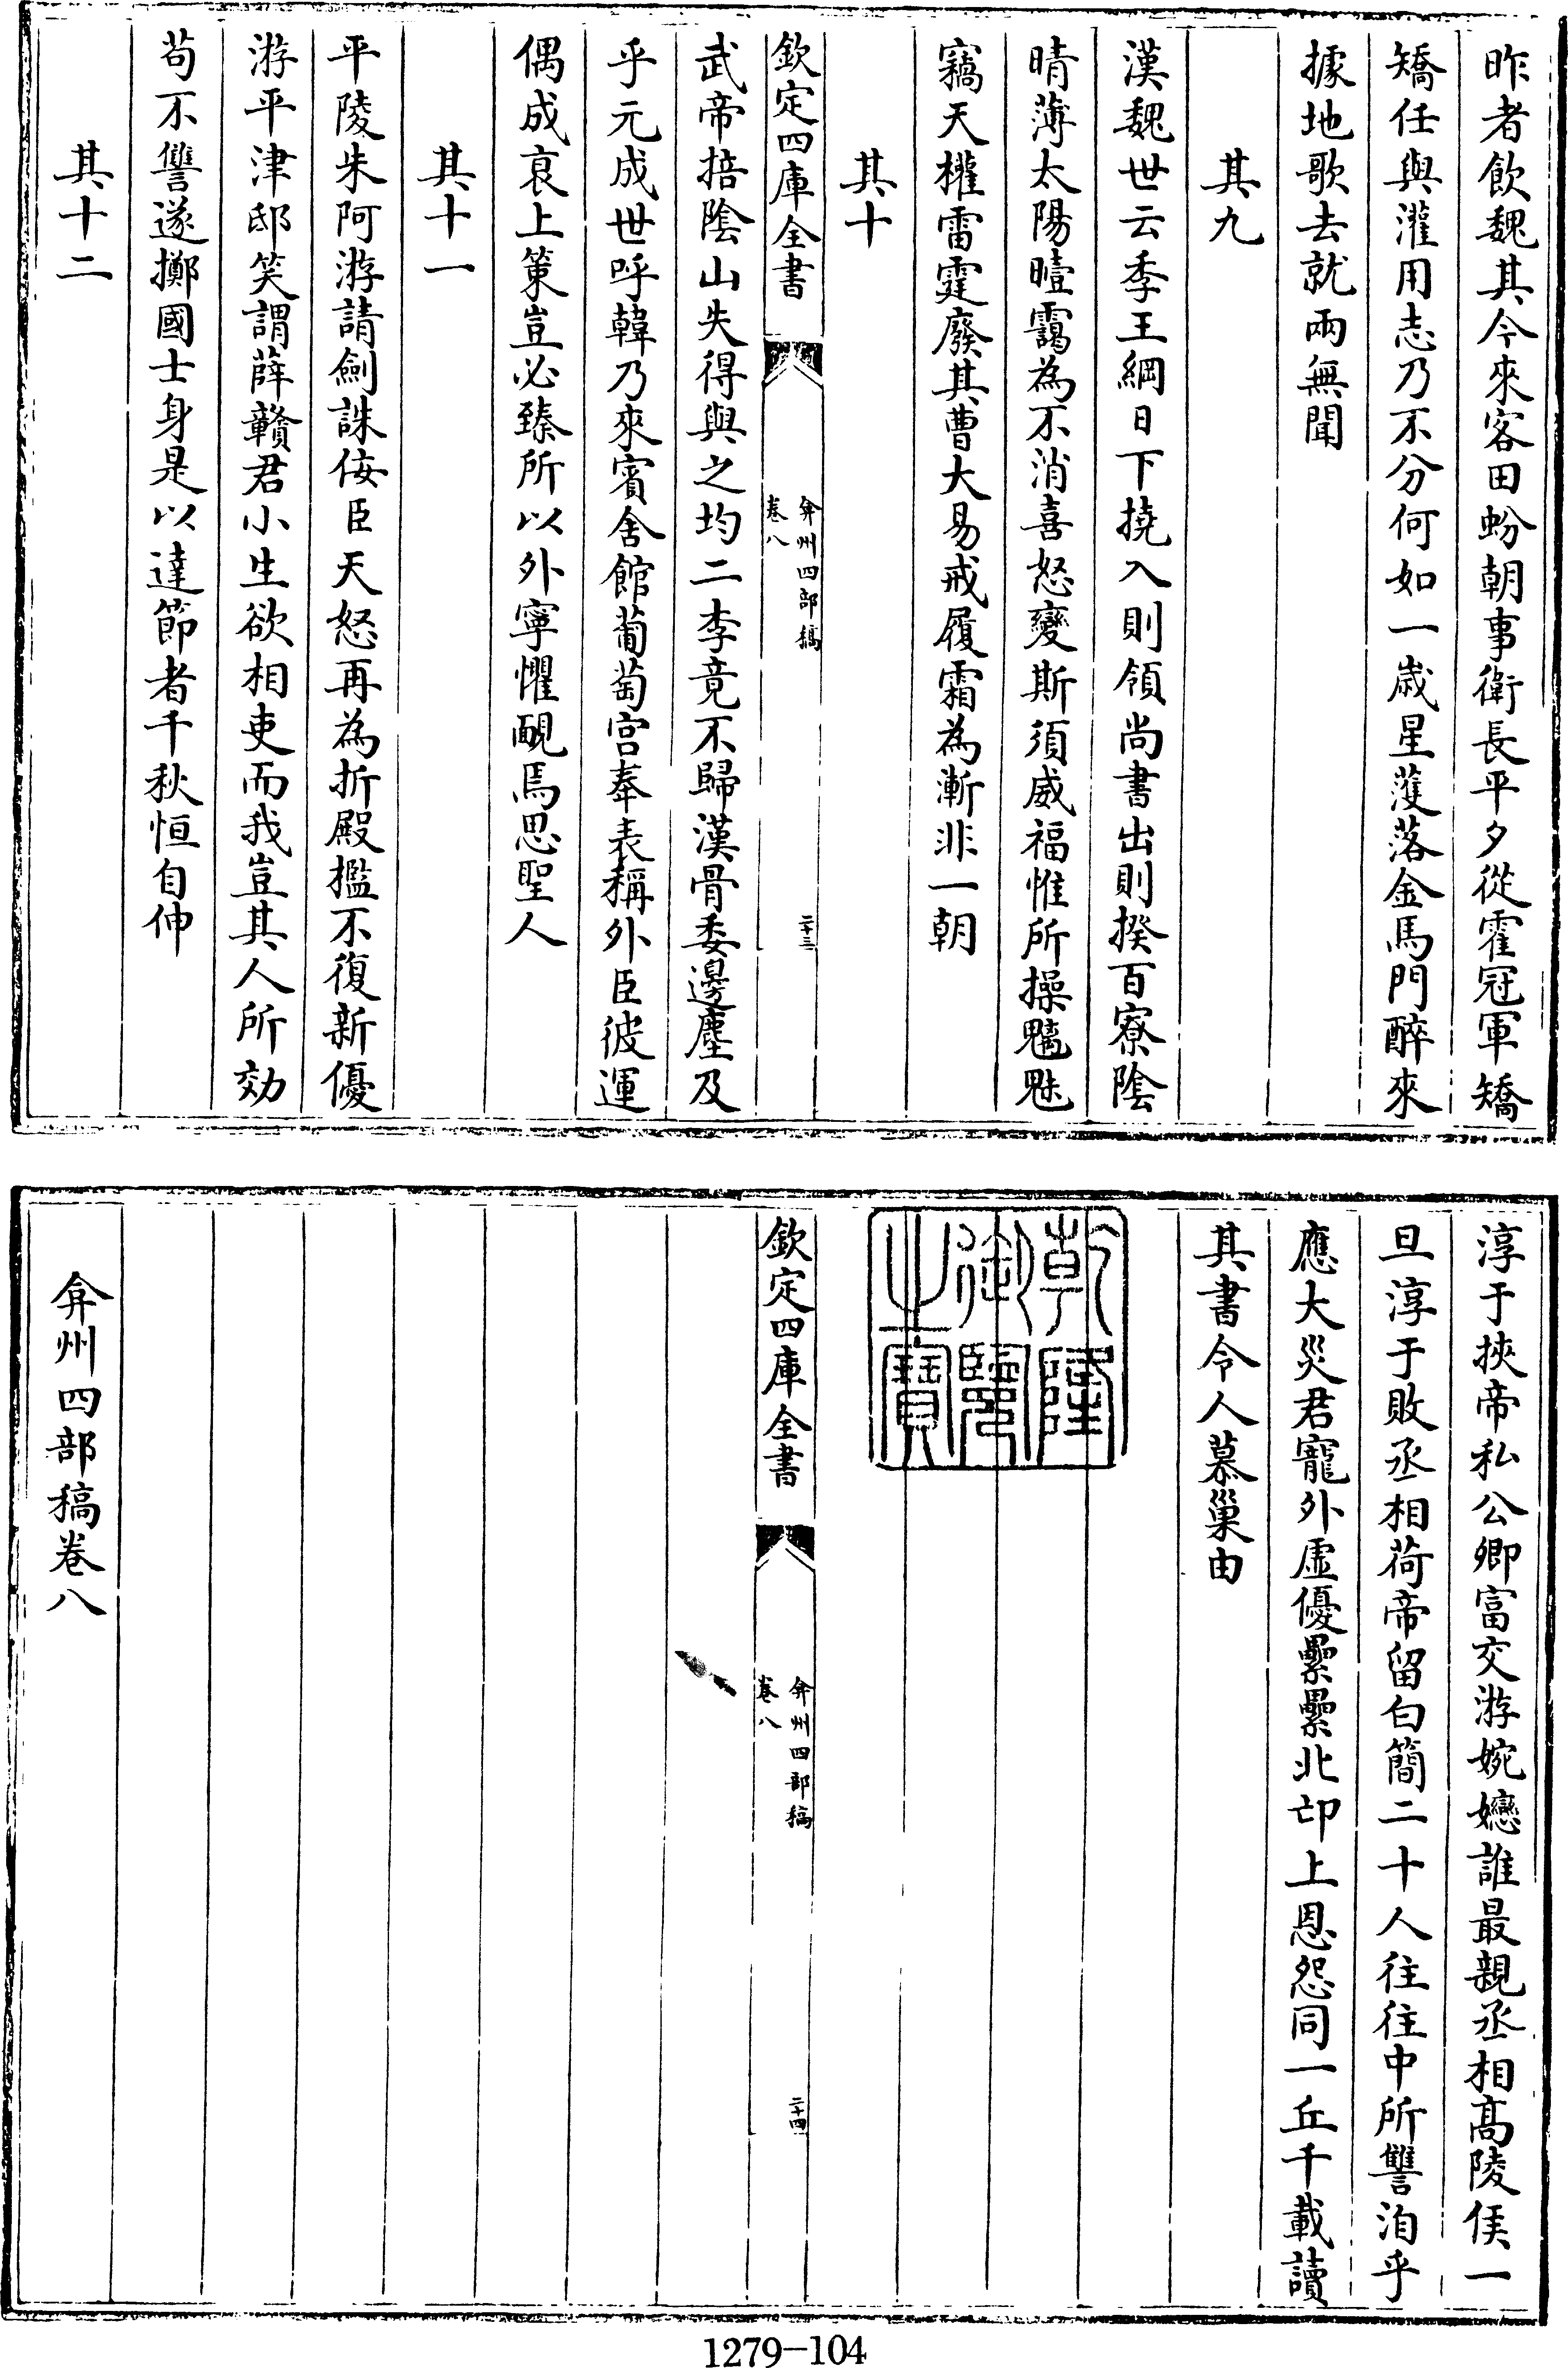 昨者飲魏其今來客田蚡朝事衛長平夕從霍冠軍矯
矯任與灌用志乃不分何如一歲星濩落金馬門醉來
據地歌去就兩無聞
其九
漢魏世云季王綱日下撓入則領尚書出則揆百寮陰
晴薄太陽曀靄為不消喜怒變斯須威福惟所操魑魅
竊天權雷霆廢其曹大易戒履霜為漸非一朝
其十
欽定四庫全書
弇州四部稿
卷八
二十三
武帝掊陰山失得與之均二李竟不歸漢骨委邊塵及
乎元成世呼韓乃來賓舍館葡萄宫奉表稱外臣彼運
偶成哀上策豈必臻所以外寧懼靦焉思聖人
其十一
平陵朱阿游請劍誅佞臣天怒再為折殿檻不復新優
游平津邸笑謂薛贛君小生欲相吏而我豈其人所効
苟不讐遂擲國士身是以達節者千秋恒自伸
其十二
淳于挾帝私公卿富交游婉孌誰最親丞相髙陵侯一
旦淳于敗丞相荷帝留白簡二十人往往中所讐洎乎
應大災君寵外虛優纍纍北邙上恩怨同一丘千載讀
其書令人慕巢由
乾隆
御覽
之寶
欽定四庫全書
弇州四部稿
卷八
二十四
弇州四部稿卷八
1279-104